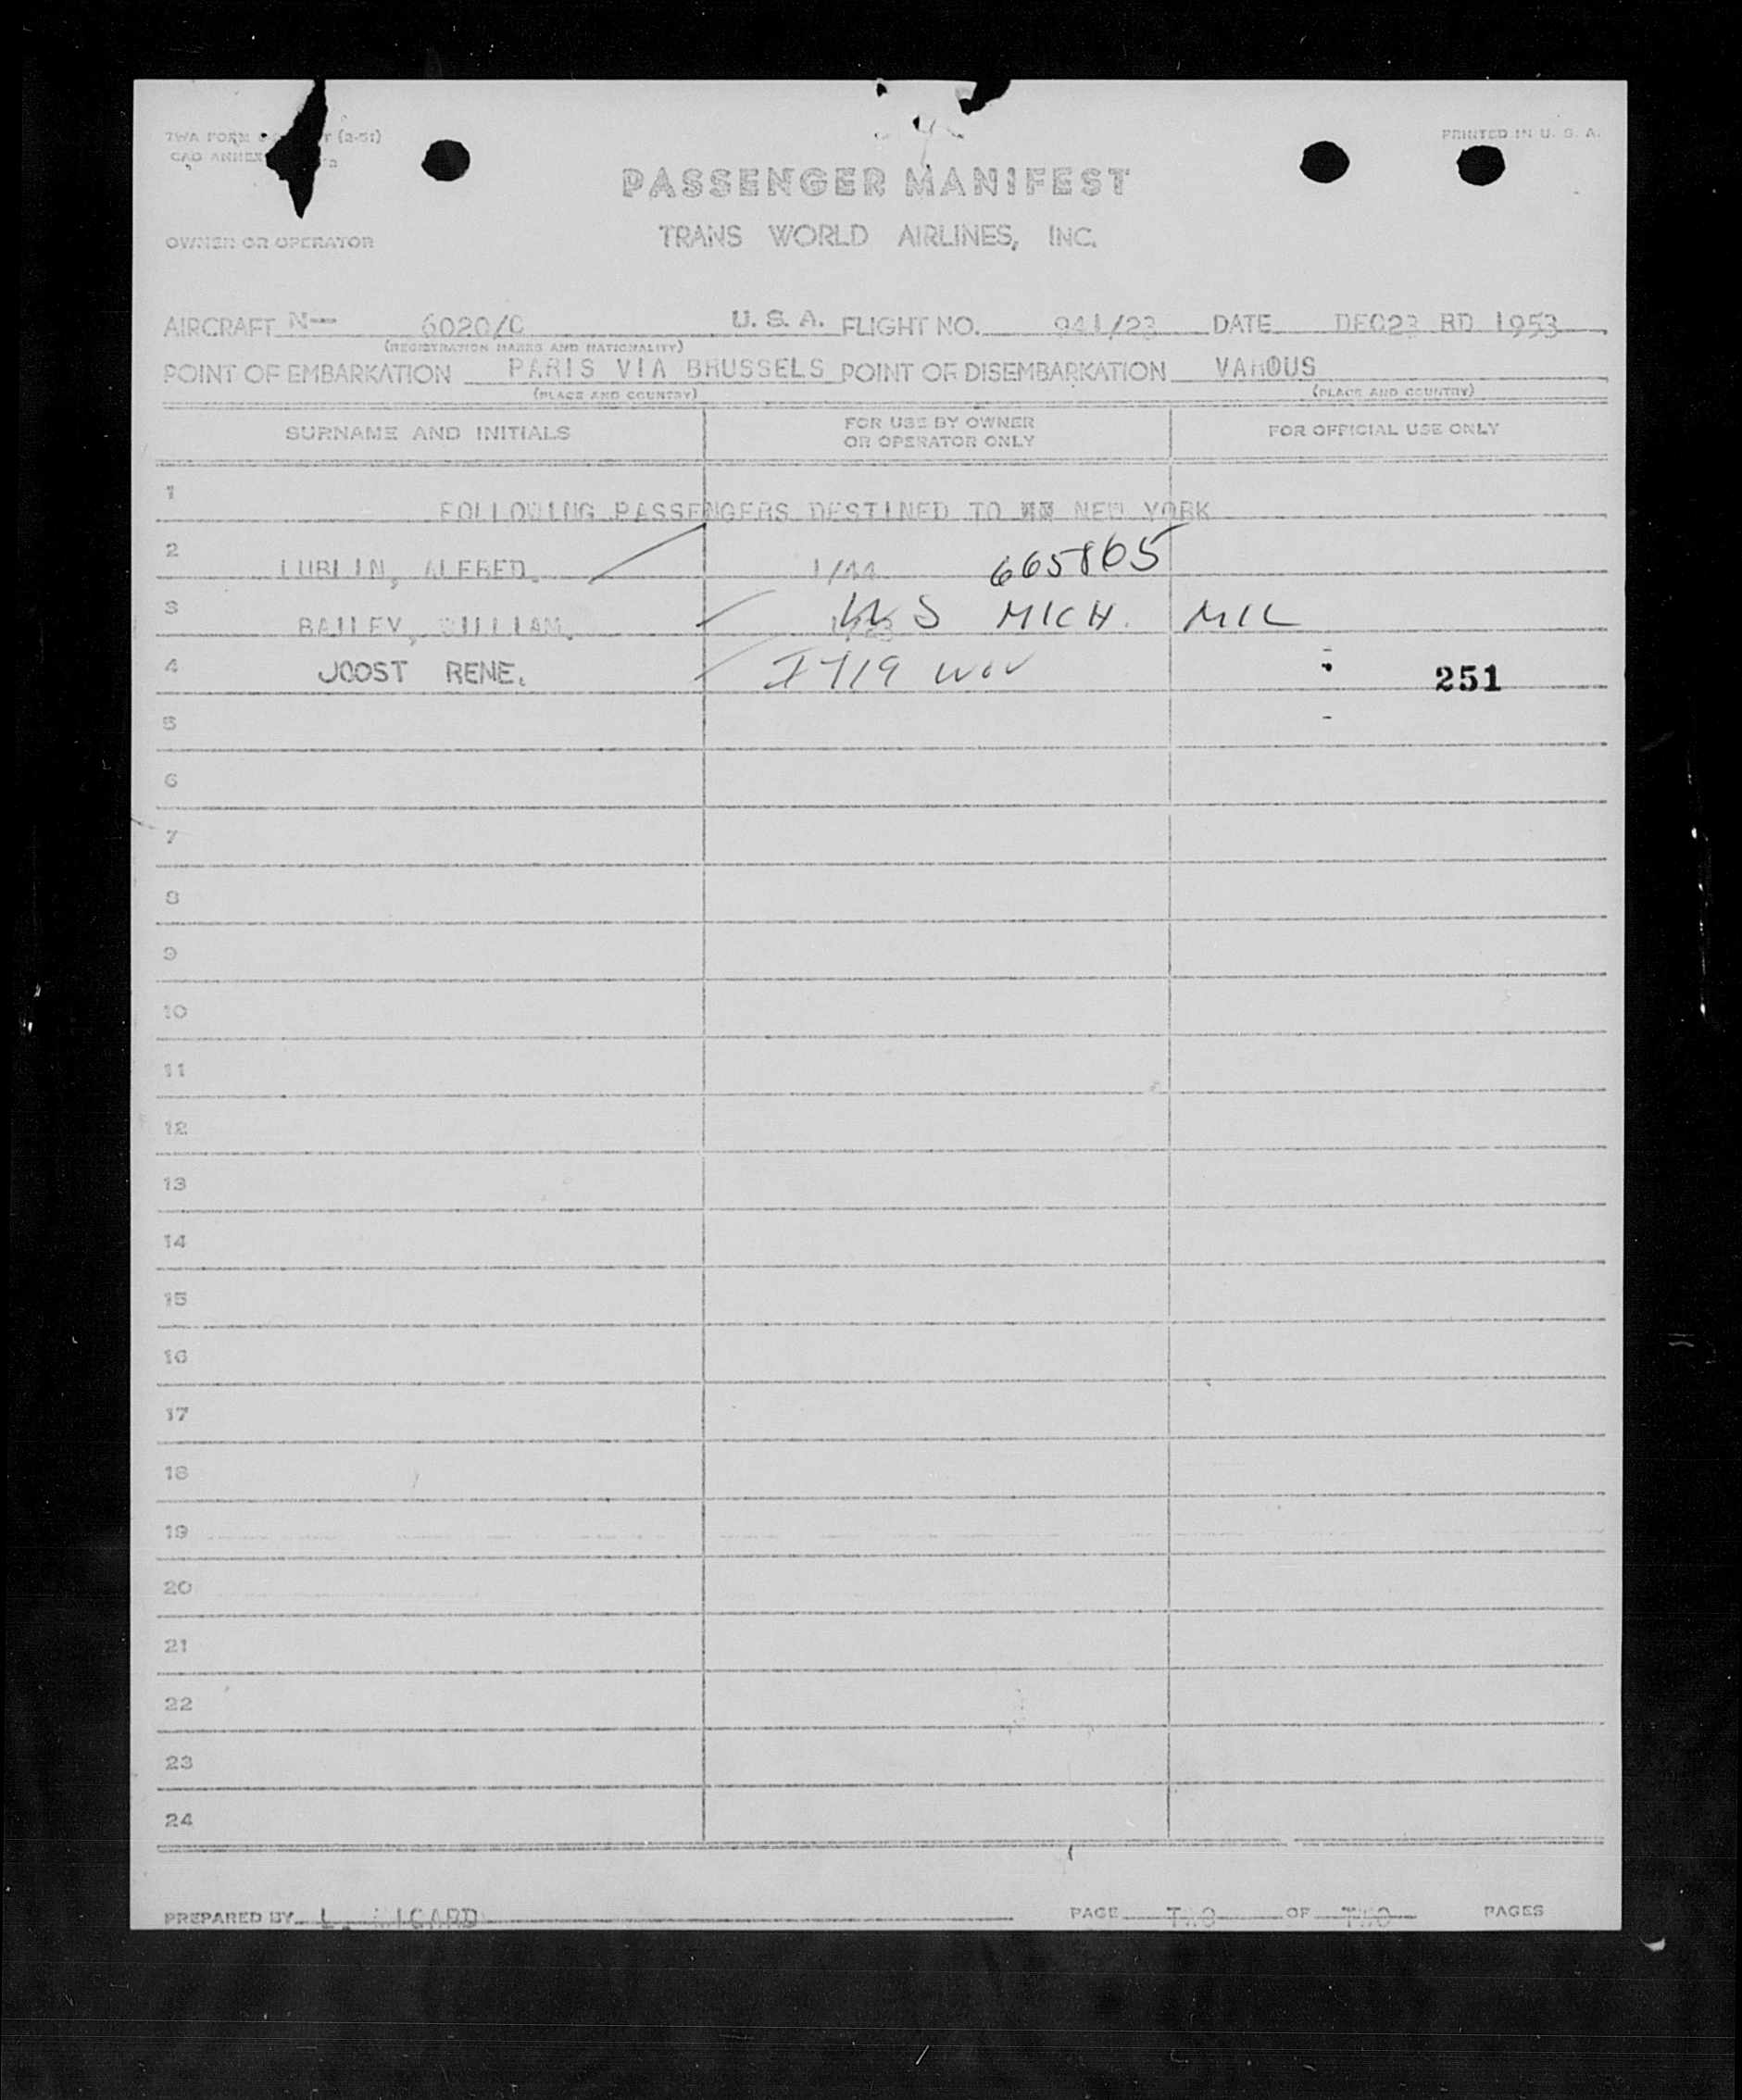 TWA FORM (2-51)
PRINTED IN U. S. A.
CAD ANNEX
PASSENGER MANIFEST
OWNER OR OPERATOR
TRANS WORLD AIRLINES, INC.
AIRCRAFT N— 6020/C U. S. A. FLIGHT NO. 941/23 DATE DEC23 RD 1953
(REGISTRATION MARKS AND NATIONALITY)
POINT OF EMBARKATION PARIS VIA BRUSSELS POINT OF DISEMBARKATION VAROUS
(PLACE AND COUNTRY) (PLACE AND COUNTRY)
SURNAME AND INITIALS
FOR USE BY OWNER
OR OPERATOR ONLY
FOR OFFICIAL USE ONLY
1 FOLLOWING PASSENGERS DESTINED TO NEW YORK
2 LUBLIN, ALFRED. 1/44 665865
3 BAILEY, WILLIAM. US MICH. MIL
4 JOOST RENE. 251
5
6
7
8
9
10
11
12
13
14
15
16
17
18
19
20
21
22
23
24
PREPARED BY L. PAGE TWO OF TWO PAGES